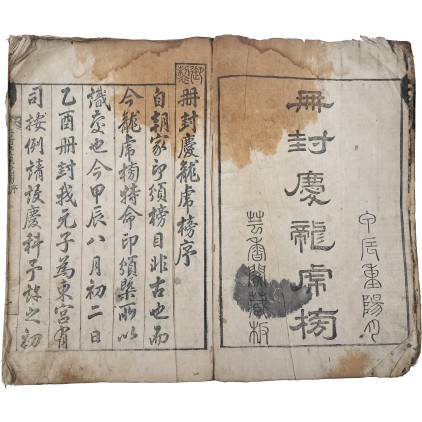 甲辰重陽月
冊封慶龍虎榜
芸香閣藏板
御製
冊封慶龍虎榜序
自朝家印頒榜目非古也而
今龍虎榜特命印頒槩所以
識慶也今甲辰八月初二日
乙酉冊封我元子為東宮有
司按例請設慶科予之初